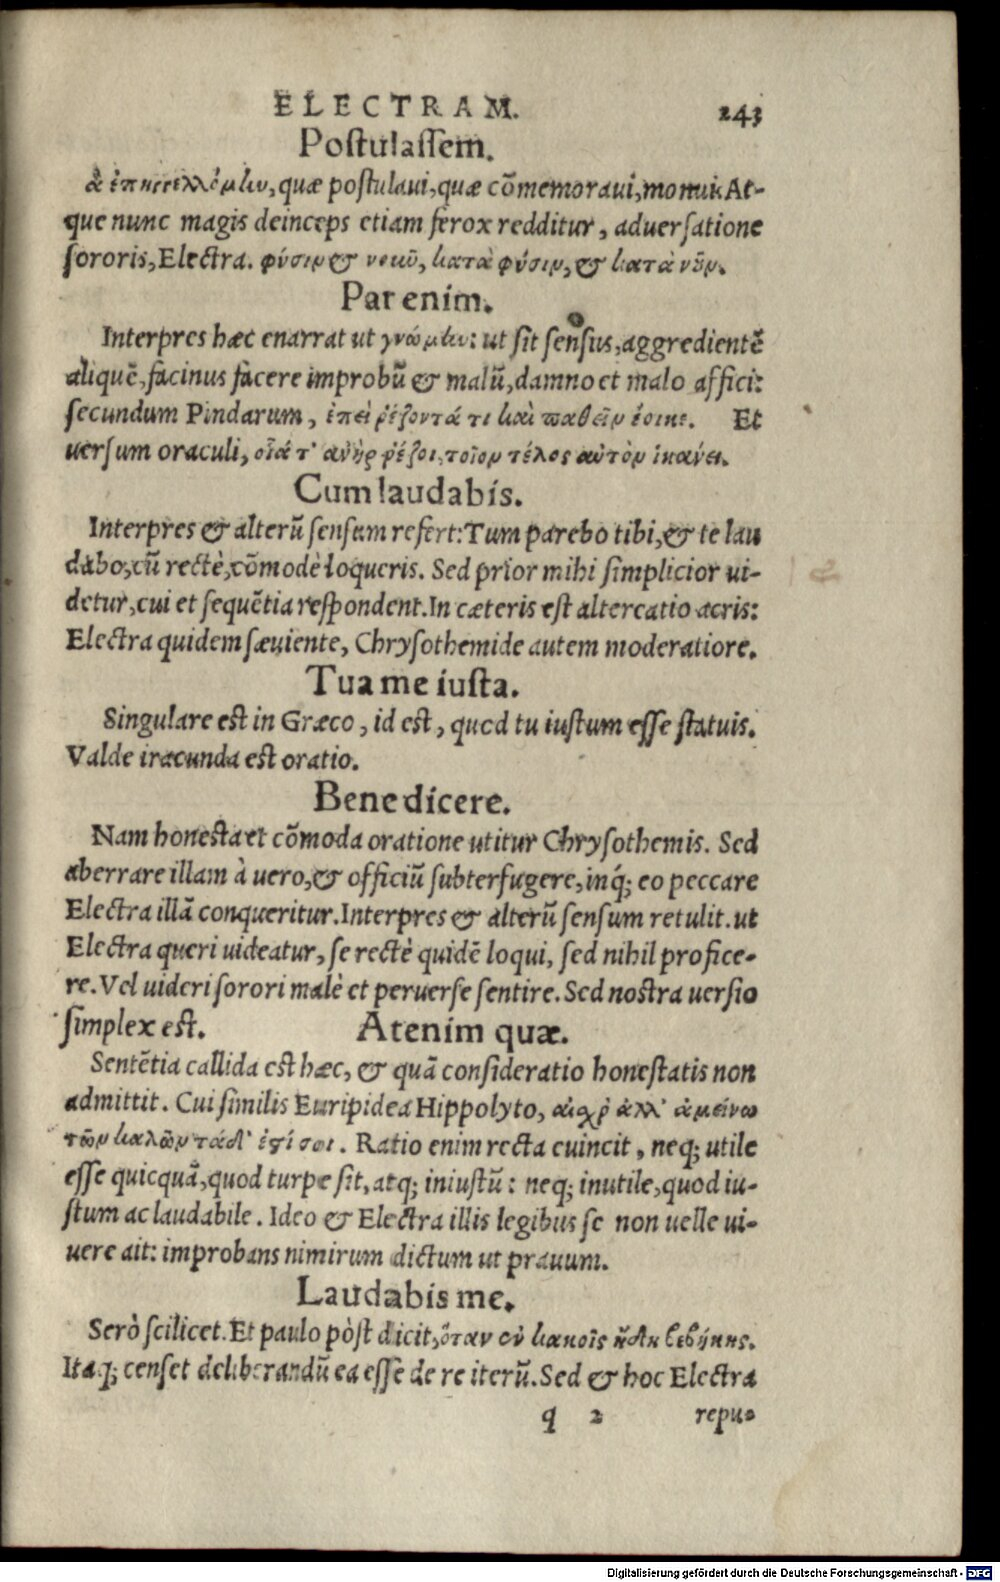 ELECTRAM. 243
Postulassem.
ἃ ἐπηγγελλόμην, quæ postulaui, quæ cõmemoraui, monui. At-
que nunc magis deinceps etiam ferox redditur, aduersatione
sororis, Electra. φύσιν & νοῦ, κατὰ φύσιν, & κατὰ νοῦν.
Par enim.
Interpres hæc enarrat ut γνώμην: ut sit sensus, aggredientẽ
aliquẽ, facinus facere improbũ & malũ, damno et malo affici:
secundum Pindarum, ἐπεὶ ῥέζοντά τι καὶ παθεῖν ἔοικε. Et
uersum oraculi, οἷά τ' ἀνὴρ ῥέζοι, τοῖον τέλος αὐτὸν ἱκανει.
Cum laudabis.
Interpres & alterũ sensum refert: Tum parebo tibi, & te lau
dabo, cũ rectè, cõmodè loqueris. Sed prior mihi simplicior ui-
detur, cui et sequẽtia respondent. In cæteris est altercatio acris:
Electra quidem sæuiente, Chrysothemide autem moderatiore.
Tua me iusta.
Singulare est in Græco, id est, quod tu iustum esse statuis.
Valde iracunda est oratio.
Bene dicere.
Nam honesta et cõmoda oratione utitur Chrysothemis. Sed
aberrare illam à uero, & officiũ subterfugere, inq́; eo peccare
Electra illã conqueritur. Interpres & alterũ sensum retulit. ut
Electra queri uideatur, se rectè quidẽ loqui, sed nihil profice-
re. Vel uideri sorori malè et peruerse sentire. Sed nostra uersio
simplex est. Atenim quæ.
Sentẽtia callida est hæc, & quã consideratio honestatis non
admittit. Cui similis Euripidea Hippolyto, αἰσχρ' ἀλλ' ἀμείνω
τῶν καλῶν τάδ' ἐστί σοι. Ratio enim recta euincit, neq; utile
esse quicquã, quod turpe sit, atq; iniustũ: neq; inutile, quod iu-
stum ac laudabile. Ideo & Electra illis legibus se non uelle ui-
uere ait: improbans nimirum dictum ut prauum.
Laudabis me.
Serò scilicet. Et paulo pòst dicit, ὅταν ἐν κακοῖς ἤδη βεβήκης.
Itaq; censet deliberandũ ea esse de re iterũ. Sed & hoc Electra
q 2 repu-
Digitalisierung gefördert durch die Deutsche Forschungsgemeinschaft - DFG